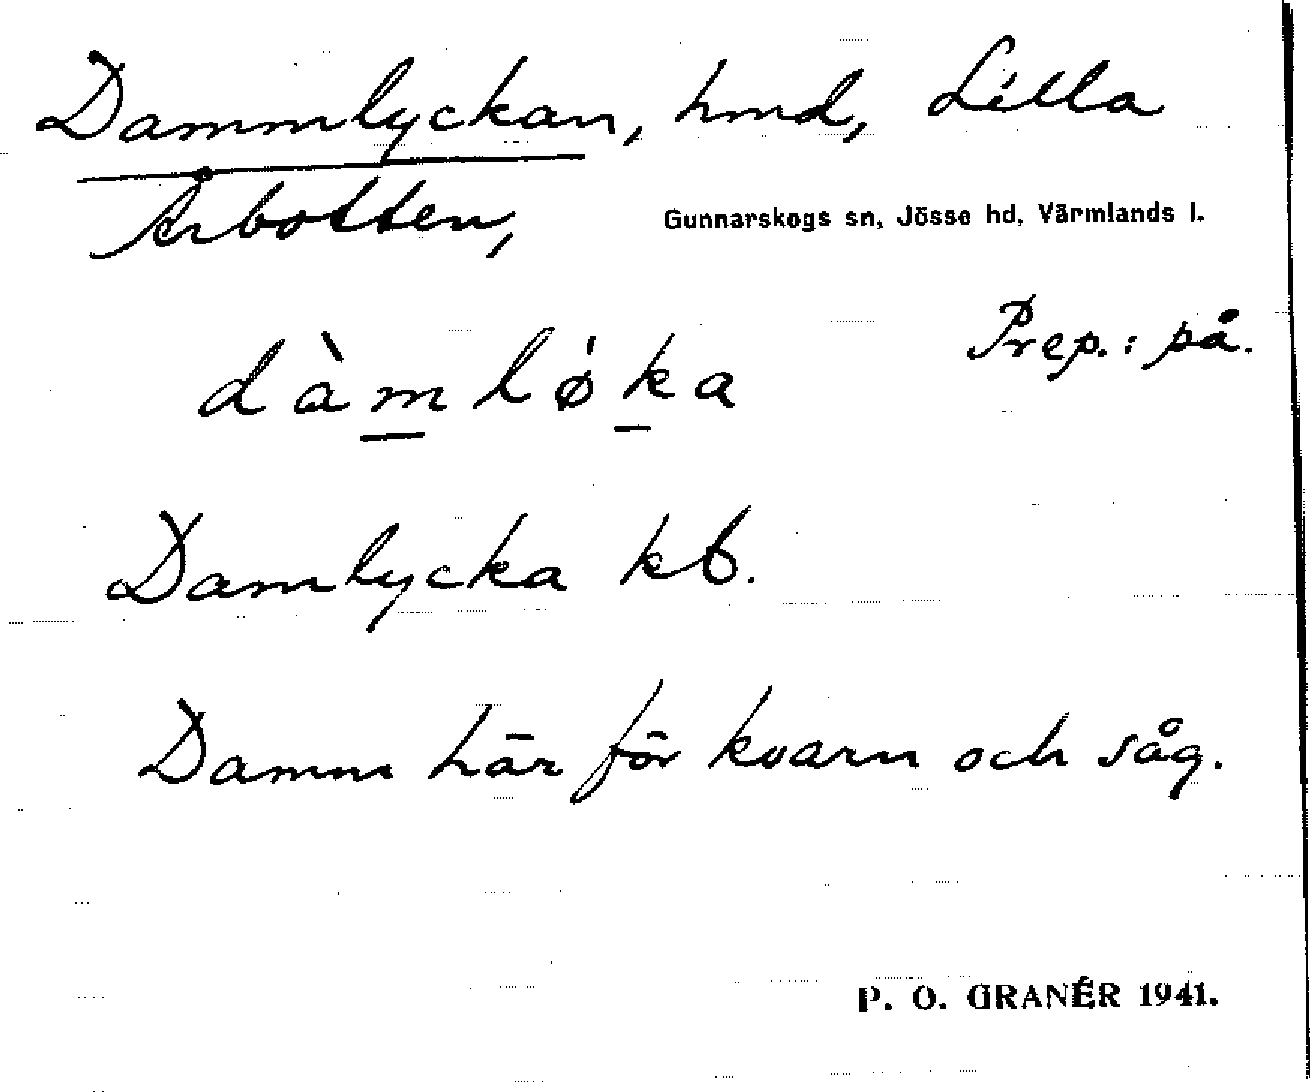 Dammlyckan, hmd, Lilla
Årbotten,
Gunnarskogs sn, Jösse hd, Värmlands l.
Prep.: på.
dàmlø̍ka
Damlycka kb.
Damm här för kvarn och såg.
P. O. GRANÉR 1941.